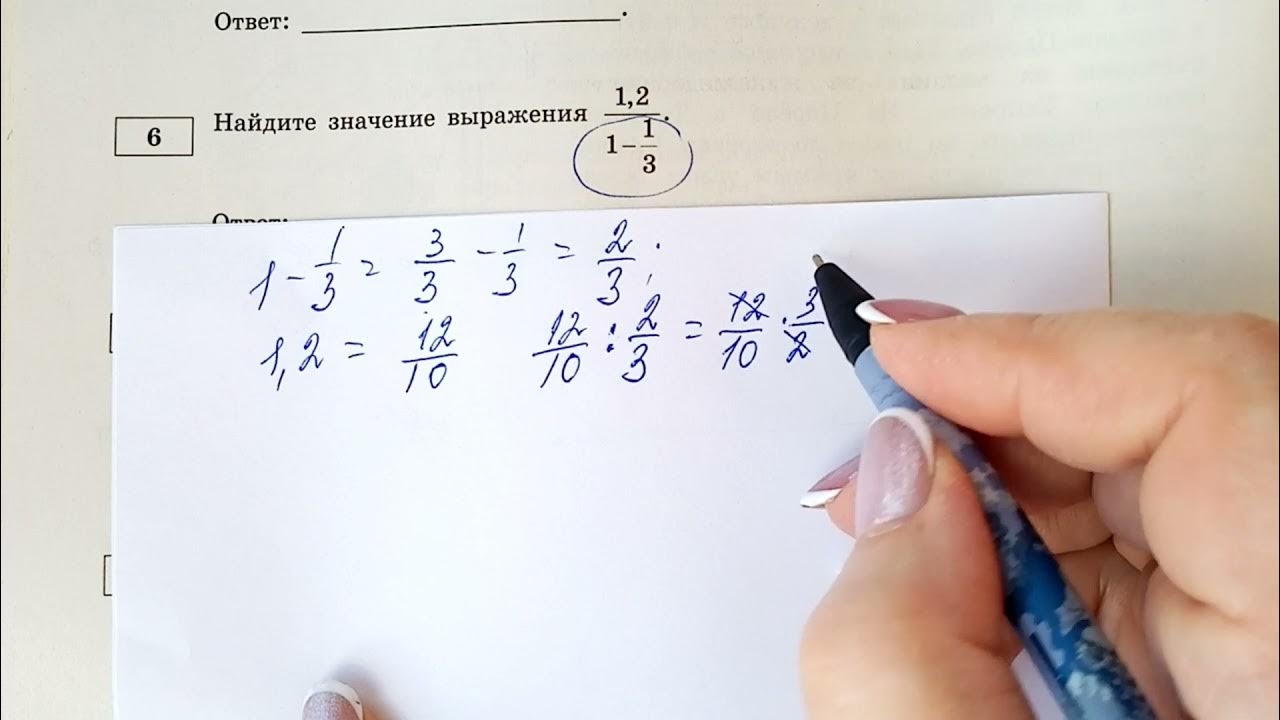 Ответ: ____________________.
6 Найдите значение выражения 1,2/(1−1/3).
Ответ:
1 − 1/3 = 3/3 − 1/3 = 2/3;
1,2 = 12/10 12/10 : 2/3 = 12/10 · 3/2